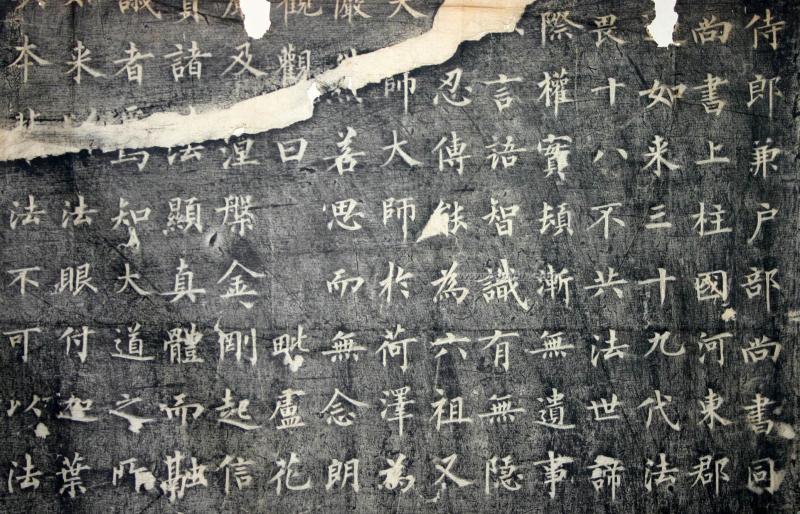 侍郎兼户部尚書同
尚書上柱國河東郡
如来三十九代法
畏十八不共法世諦
際權實頓漸無遺事
言語智識有無隱
忍傳能為六祖又
師大師於荷澤為
善思而無念朗
觀曰毗盧花
及涅槃金剛起信
諸法顯真體而融
識者焉知大道之所
来法眼付迦葉
本法不可以法